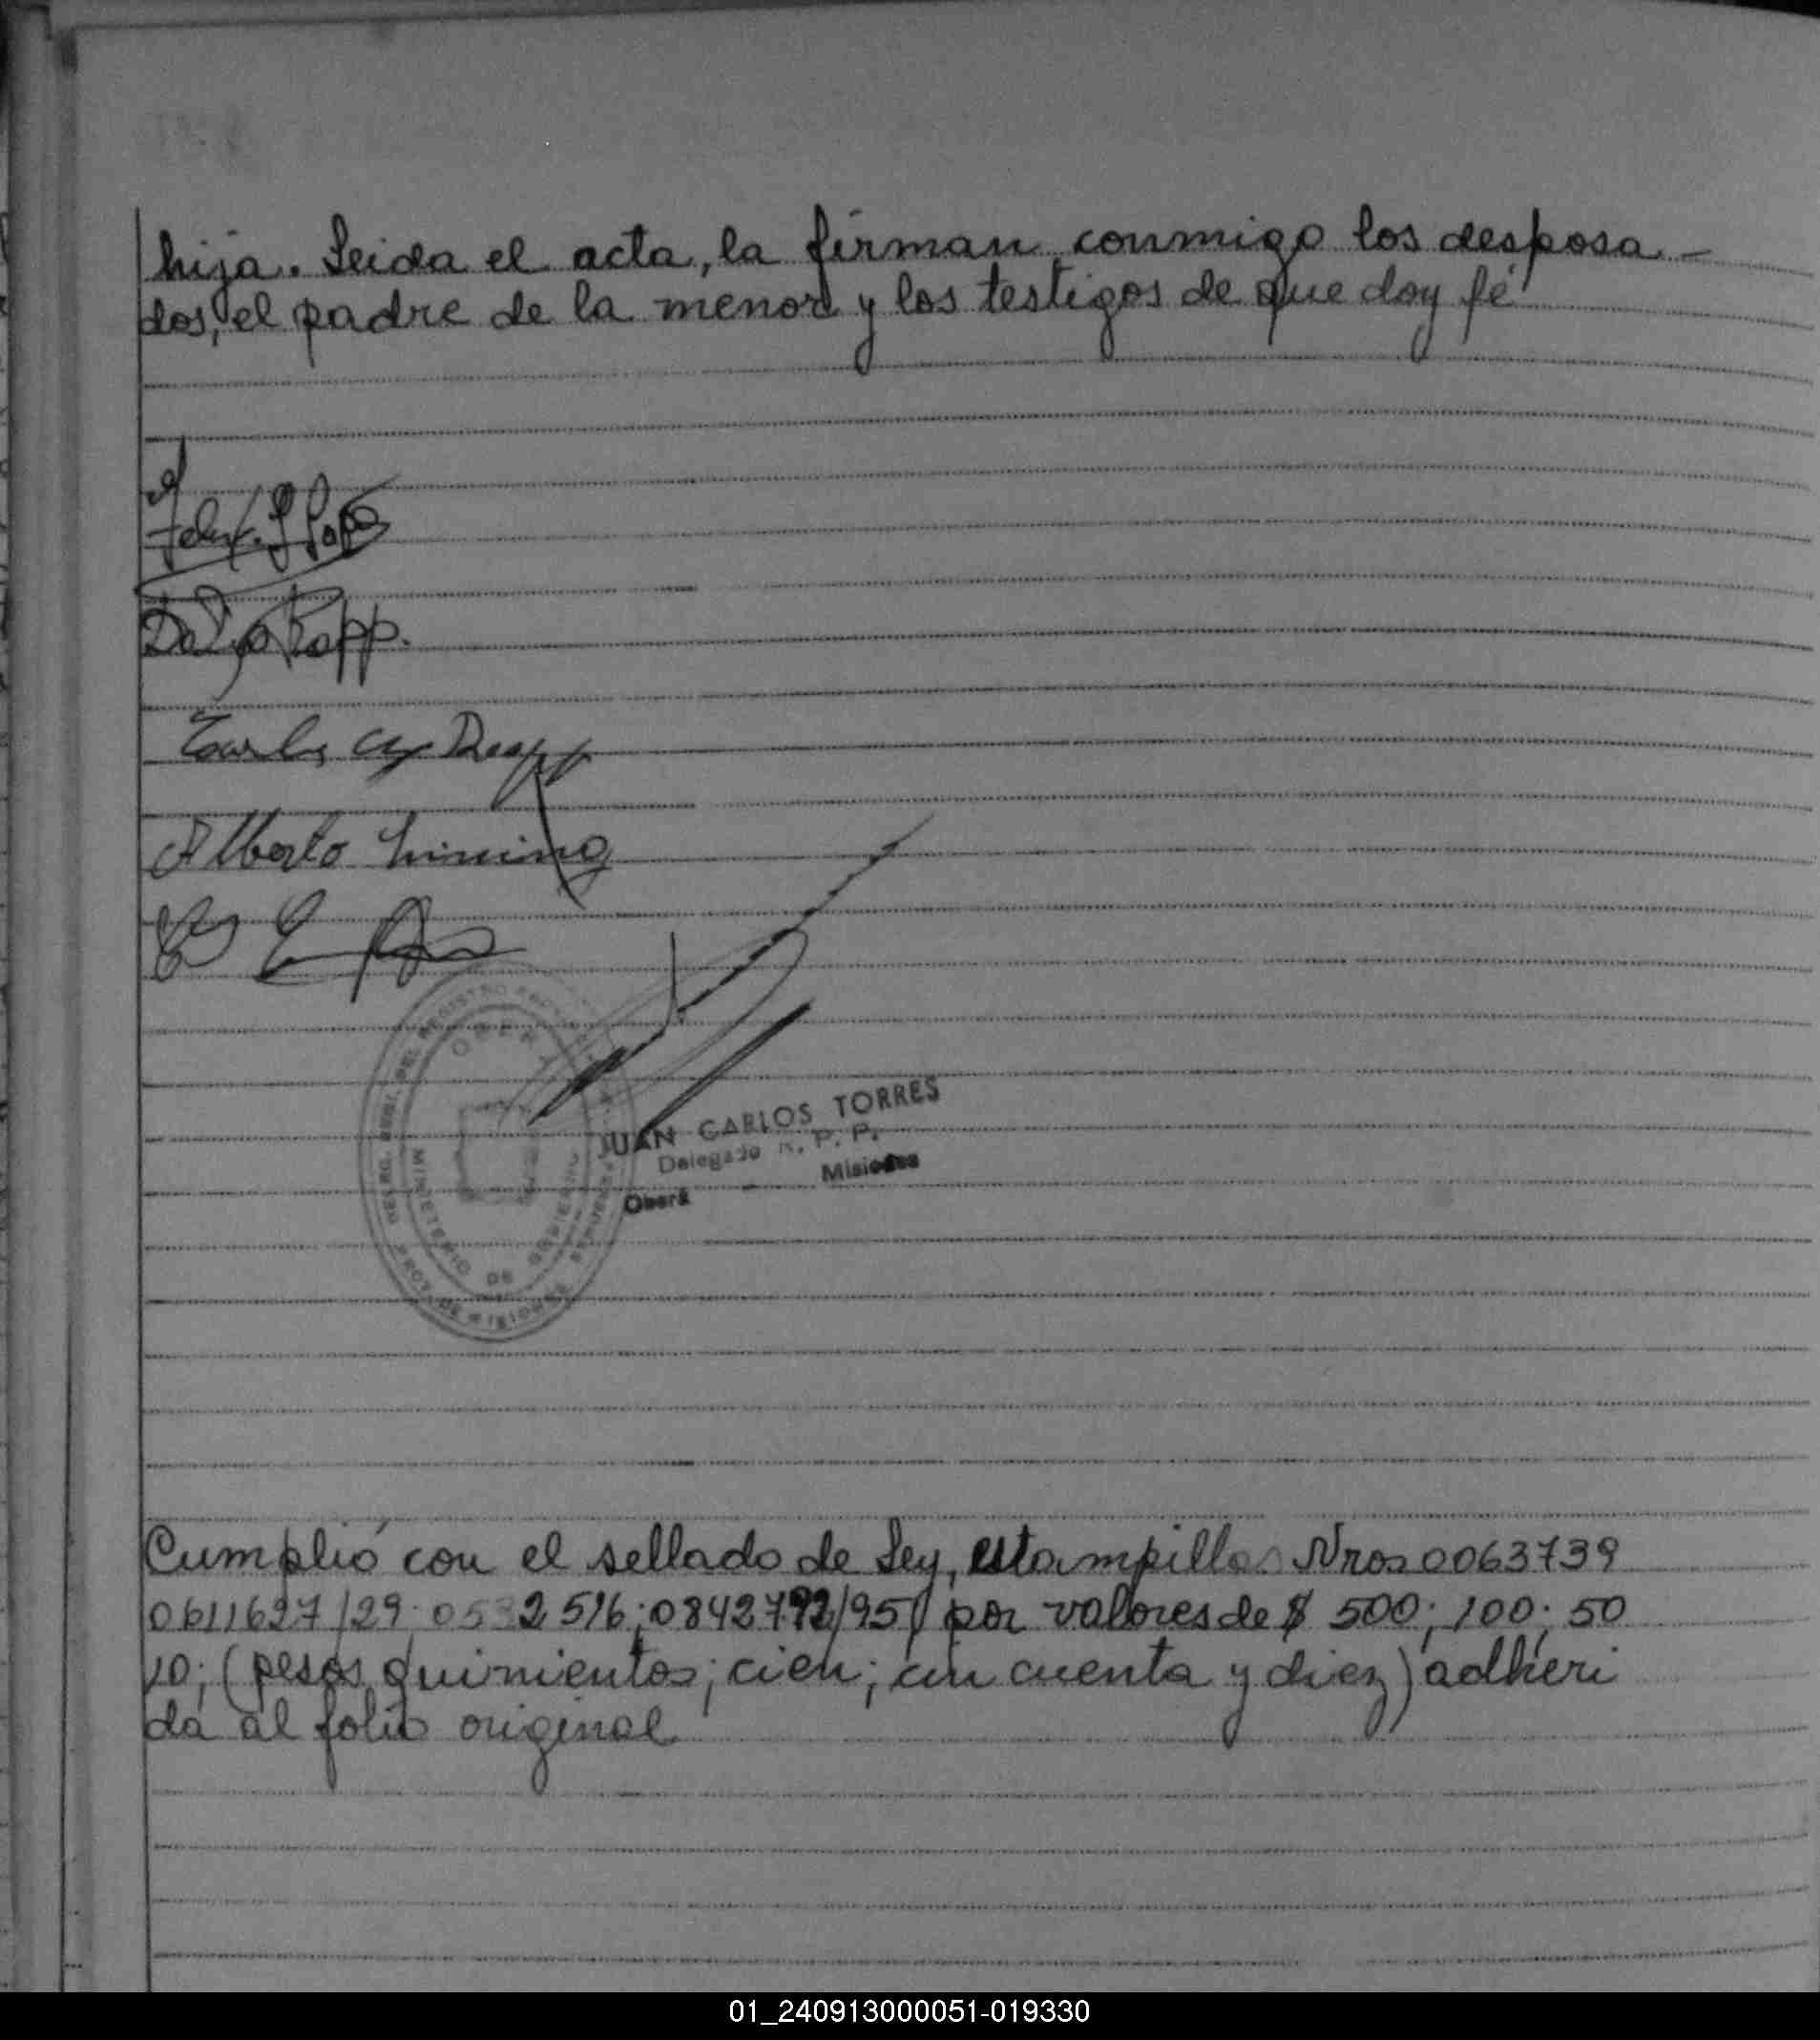 hija. Leida el acta, la firman conmigo los desposa-
dos, el padre de la menor y los testigos de que doy fé
Rapp.
Alberto
OBERA
MINISTERIO DE GOBIERNO
PROV. DE MISIONES
JUAN CARLOS TORRES
Delegado R. P. P.
Oberá - Misiones
Cumplió con el sellado de Ley, estampillas Nros 0063739
0611627/29; 0532516; 0842792/95, por valores de $ 500; 100; 50
10; (pesos quinientos; cien; cin cuenta y diez) adheri
da al folio original
01_240913000051-019330